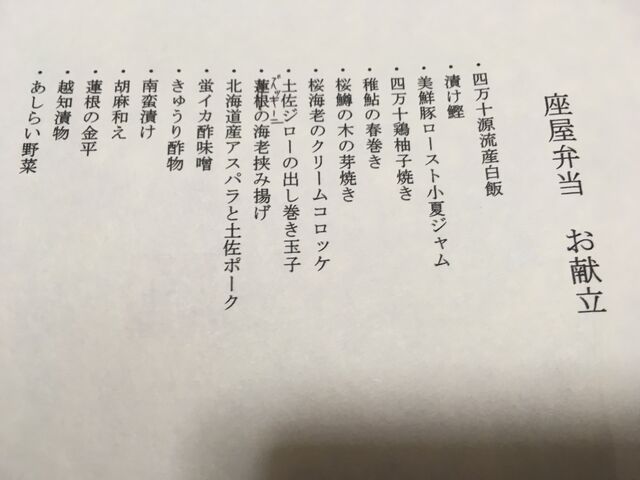 座屋弁当 お献立
・四万十源流産白飯
・漬け鰹
・美鮮豚ロースト小夏ジャム
・四万十鶏柚子焼き
・稚鮎の春巻き
・桜鱒の木の芽焼き
・桜海老のクリームコロッケ
・土佐ジローの出し巻き玉子
ズッキーニ
・蓮根の海老挟み揚げ
・北海道産アスパラと土佐ポーク
・蛍イカ酢味噌
・きゅうり酢物
・南蛮漬け
・胡麻和え
・蓮根の金平
・越知漬物
・あしらい野菜